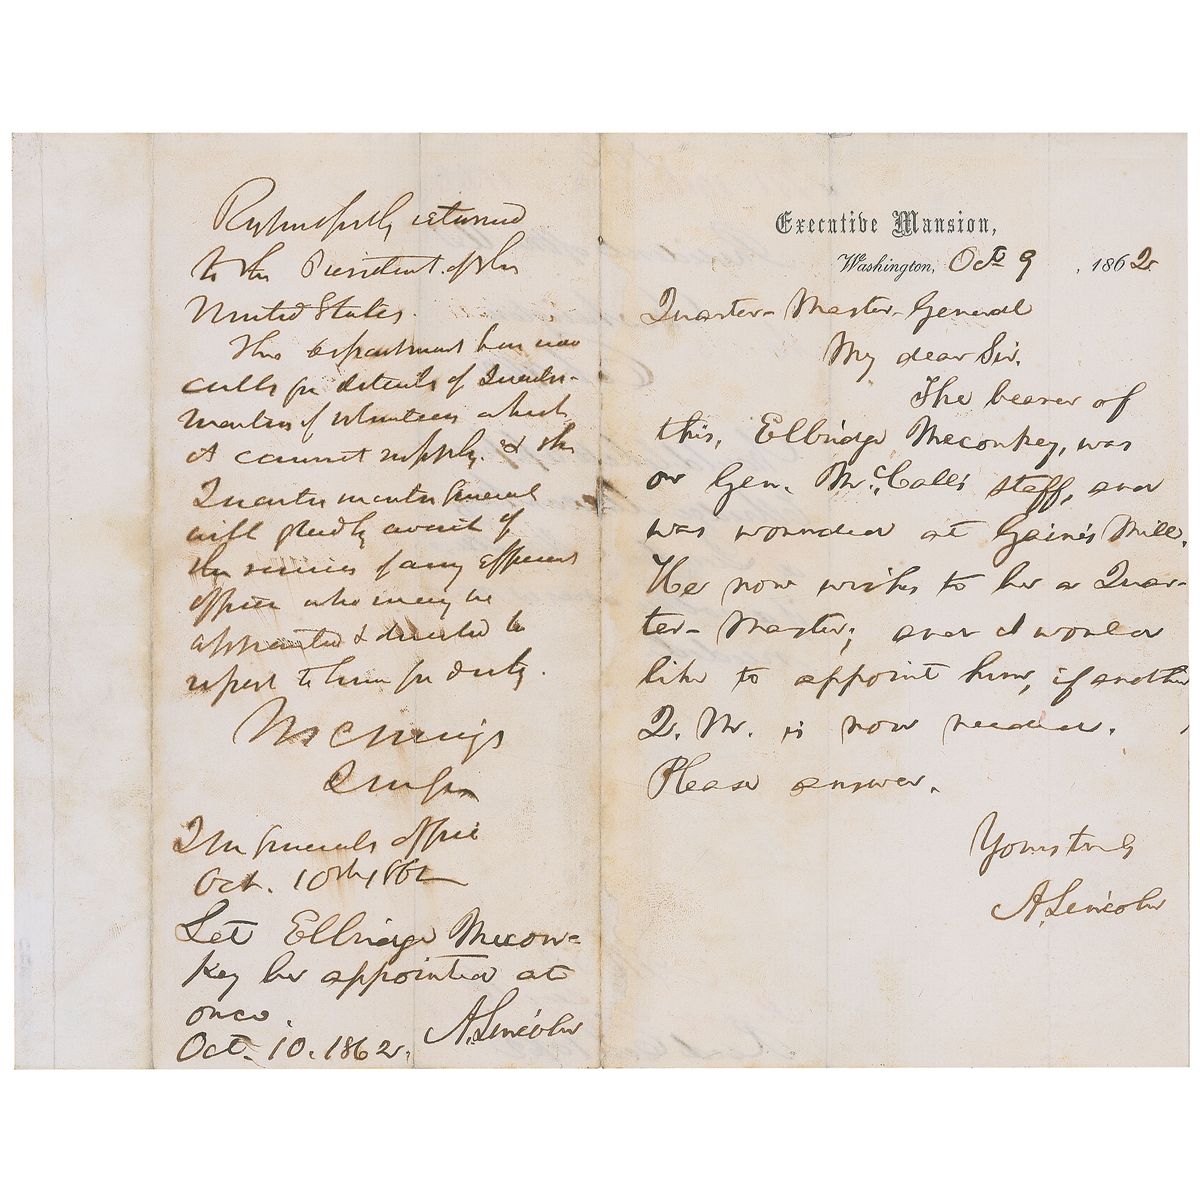 Executive Mansion,
Washington, Oct. 9, 1862
Quarter-Master-General
My dear Sir.
The bearer of
this, Elbridge Meconkey, was
on Gen. McCall's staff, and
was wounded at Gain's Mill.
He now wishes to be a Quar-
ter-Master; and I would
like to appoint him, if another
Q. M. is now needed.
Please answer.
Yours truly
A. Lincoln
Respectfully returned
to the President of the
United States.
This department has now
calls for details of Quarter-
masters of volunteers which
it cannot supply. & the
Quartermaster General
will gladly avail of
the services of any efficient
officer who may be
appointed & directed to
report to him for duty.
M C Meigs
QMGen
QM Generals office
Oct. 10th 1862
Let Elbridge Mecon-
key be appointed at
once.
A. Lincoln
Oct. 10. 1862.